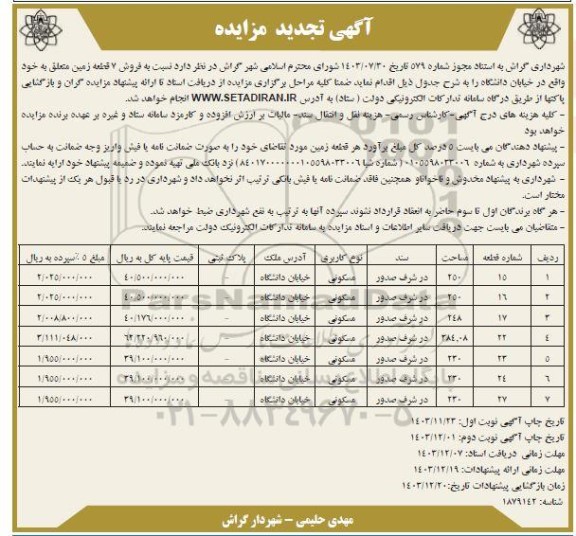 آگهی تجدید مزایده
شهرداری گراش به استناد مجوز شماره ۵۷۹ تاریخ ۱۴۰۳/۰۷/۳۰ شورای محترم اسلامی شهر گراش در نظر دارد نسبت به فروش ۷ قطعه زمین متعلق به خود
واقع در خیابان دانشگاه را به شرح جدول ذیل اقدام نماید ضمنا کلیه مراحل برگزاری مزایده از دریافت اسناد تا ارائه پیشنهاد مزایده گران و بازگشایی
پاکتها از طریق درگاه سامانه تدارکات الکترونیکی دولت ( ستاد) به آدرس WWW.SETADIRAN.IR انجام خواهد شد.
- کلیه هزینه های درج آگهی- کارشناس رسمی- هزینه نقل و انتقال سند- مالیات بر ارزش افزوده و کارمزد سامانه ستاد و غیره بر عهده برنده مزایده
خواهد بود
- پیشنهاد دهندگان می بایست ۵ درصد کل مبلغ برآورد هر قطعه زمین مورد تقاضای خود را به صورت ضمانت نامه یا فیش واریز وجه ضمانت به حساب
سپرده شهرداری به شماره ۰۱۰۵۵۹۸۰۳۳۰۰۶ ( شماره شبا ۸۴۰۱۷۰۰۰۰۰۰۰۱۰۵۵۹۸۰۳۳۰۰۶) نزد بانک ملی تهیه نموده و ضمیمه پیشنهاد خود ارایه نمایند.
- شهرداری به پیشنهاد مخدوش و ناخوانا و همچنین فاقد ضمانت نامه یا فیش بانکی ترتیب اثر نخواهد داد و شهرداری در رد یا قبول هر یک از پیشنهادات
مختار است.
- هر گاه برندگان اول تا سوم حاضر به انعقاد قرارداد نشوند سپرده آنها به ترتیب به نفع شهرداری ضبط خواهد شد.
- متقاضیان می بایست جهت دریافت سایر اطلاعات و اسناد مزایده به سامانه تدارکات الکترونیک دولت مراجعه نمایند.
ردیف شماره قطعه مساحت سند نوع کاربری آدرس ملک پلاک ثبتی قیمت پایه کل به ریال مبلغ ۵٪ سپرده به ریال
۱ ۱۵ ۲۵۰ در شرف صدور مسکونی خیابان دانشگاه - ۴۰/۵۰۰/۰۰۰/۰۰۰ ۲/۰۲۵/۰۰۰/۰۰۰
۲ ۱۶ ۲۵۰ در شرف صدور مسکونی خیابان دانشگاه - ۴۰/۵۰۰/۰۰۰/۰۰۰ ۲/۰۲۵/۰۰۰/۰۰۰
۳ ۱۷ ۲۴۸ در شرف صدور مسکونی خیابان دانشگاه - ۴۰/۱۷۶/۰۰۰/۰۰۰ ۲/۰۰۸/۸۰۰/۰۰۰
۴ ۲۲ ۳۸۴.۰۸ در شرف صدور مسکونی خیابان دانشگاه - ۶۲/۲۲۰/۹۶۰/۰۰۰ ۳/۱۱۱/۰۴۸/۰۰۰
۵ ۲۳ ۲۳۰ در شرف صدور مسکونی خیابان دانشگاه - ۳۹/۱۰۰/۰۰۰/۰۰۰ ۱/۹۵۵/۰۰۰/۰۰۰
۶ ۲۴ ۲۳۰ در شرف صدور مسکونی خیابان دانشگاه - ۳۹/۱۰۰/۰۰۰/۰۰۰ ۱/۹۵۵/۰۰۰/۰۰۰
۷ ۲۷ ۲۳۰ در شرف صدور مسکونی خیابان دانشگاه - ۳۹/۱۰۰/۰۰۰/۰۰۰ ۱/۹۵۵/۰۰۰/۰۰۰
ParsNamadData
۰۲۱-۸۸۳۴۹۶۷۰-۵
تاریخ چاپ آگهی نوبت اول: ۱۴۰۳/۱۱/۲۳
تاریخ چاپ آگهی نوبت دوم: ۱۴۰۳/۱۲/۰۱
مهلت زمانی دریافت اسناد: ۱۴۰۳/۱۲/۰۷
مهلت زمانی ارائه پیشنهادات: ۱۴۰۳/۱۲/۱۹
زمان بازگشایی پیشنهادات تاریخ: ۱۴۰۳/۱۲/۲۰
شناسه: ۱۸۷۹۱۴۲
مهدی حلیمی - شهردار گراش